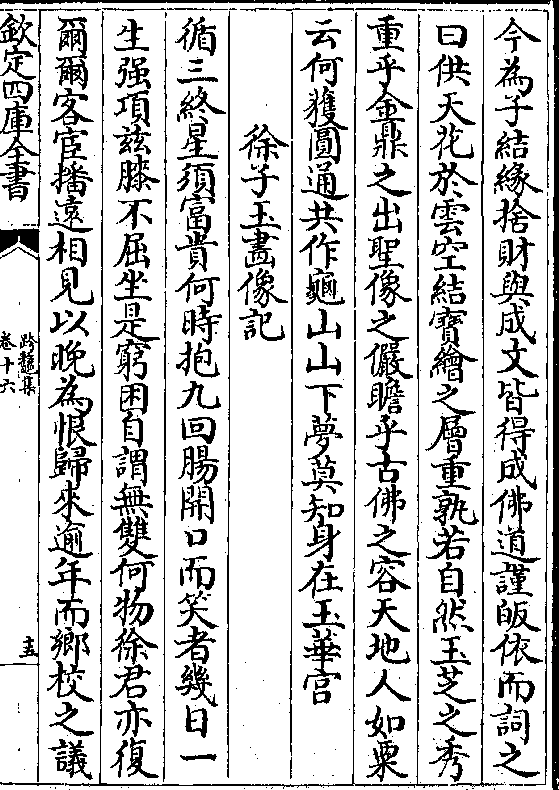 今為子結緣捨財與成文皆得成佛道謹皈依而詞之
曰供天花於雲空結寶繪之層重孰若自然玉芝之秀
重乎金鼎之出聖像之儼瞻乎古佛之容天地人如粟
云何獲圓通共作龜山山下夢莫知身在玉華宫
徐子玉畫像記
循三終星須富貴何時抱九回腸開口而笑者幾日一
生强項兹膝不屈坐是窮困自謂無雙何物徐君亦復
爾爾客宦播遠相見以晚為恨歸來逾年而鄉校之議
欽定四庫全書
跨鼇集
卷十六
十五